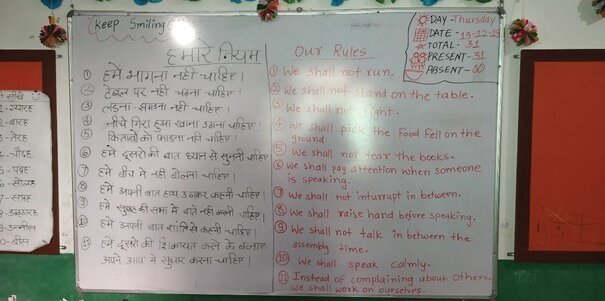 Keep Smiling
हमारे नियम
① हमें भागना नहीं चाहिए।
② टेबल पर नहीं चढ़ना चाहिए।
③ लड़ना-झगड़ना नहीं चाहिए।
④ नीचे गिरा हुआ खाना उठाना चाहिए।
⑤ किताबों को फाड़ना नहीं चाहिए।
⑥ हमें दूसरों की बात ध्यान से सुननी चाहिए
⑦ हमें बीच में नहीं बोलना चाहिए।
⑧ हमें अपनी बात हाथ उठाकर कहनी चाहिए।
⑨ हमें सुबह की सभा में बातें नहीं करनी चाहिए।
⑩ हमें अपनी बात शान्ति से कहनी चाहिए।
⑪ हमें दूसरों की शिकायत करने के बजाय
अपने आप में सुधार करना चाहिए।
Our Rules
① We shall not run.
② We shall not stand on the table.
③ We shall not fight.
④ We shall pick the food fell on the
ground.
⑤ We shall not tear the books.
⑥ We shall pay attention when someone
is speaking.
⑦ We shall not inturrupt in between.
⑧ We shall raise hand before speaking.
⑨ We shall not talk in between the
assembly time.
⑩ We shall speak calmly.
⑪ Instead of complaining about others,
we shall work on ourselves.
DAY - Thursday
DATE - 19-12-19
TOTAL - 31
PRESENT - 31
ABSENT - 00
-ग्यारह
-बारह
-तेरह
-चौदह
-पंद्रह
-सोलह
-सत्रह
-अठारह
-उन्नीस
-बीस